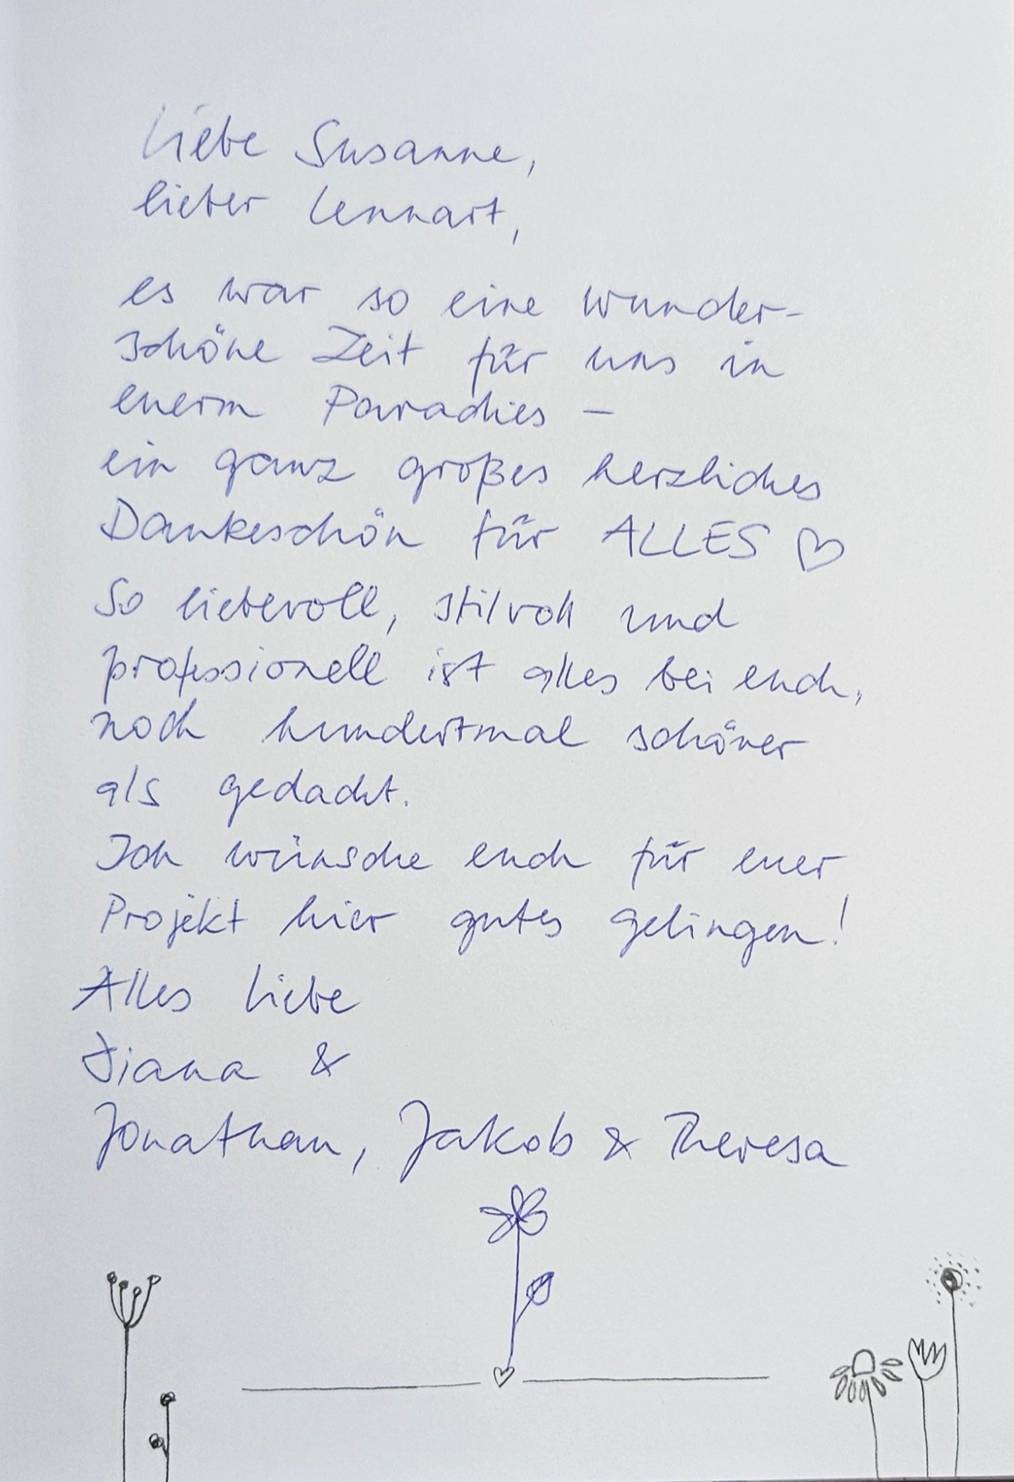 Liebe Susanne,
lieber Lennart,
es war so eine wunder-
schöne Zeit für uns in
euerm Paradies –
ein ganz großes herzliches
Dankeschön für ALLES ♡
So liebevoll, stilvoll und
professionell ist alles bei euch,
noch hundertmal schöner
als gedacht.
Ich wünsche euch für euer
Projekt hier gutes gelingen!
Alles Liebe
Diana &
Jonathan, Jakob & Theresa